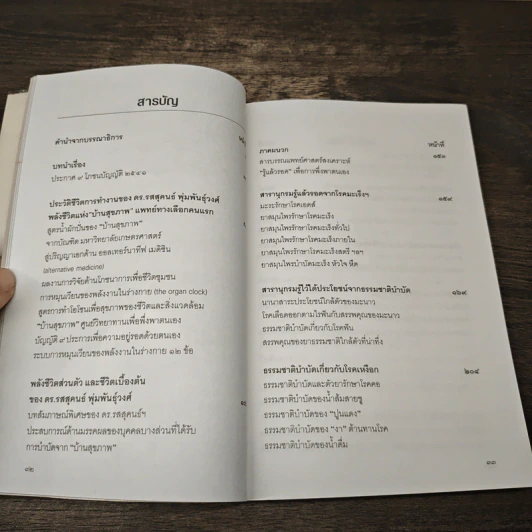 สารบัญ
คำนำจากบรรณาธิการ
บทนำเรื่อง
ประกาศ ๙ โภชนบัญญัติ ๒๕๔๑
ประวัติชีวิตการทำงานของ ดร.รสสุคนธ์ พุ่มพันธุ์วงศ์
พลังชีวิตแห่ง "บ้านสุขภาพ" แพทย์ทางเลือกคนแรก
สูตรน้ำผักปั่นของ "บ้านสุขภาพ"
จากบัณฑิต มหาวิทยาลัยเกษตรศาสตร์
สู่ปริญญาเอกด้าน ออลเทอร์นาทีฟ เมดิซิน
(alternative medicine)
ผลงานการวิจัยด้านโภชนาการเพื่อชีวิตชุมชน
การหมุนเวียนของพลังงานในร่างกาย (the organ clock)
สูตรการทำโยโชนเพื่อสุขภาพของชีวิตและสิ่งแวดล้อม
"บ้านสุขภาพ" ศูนย์วิทยาทานเพื่อพึ่งพาตนเอง
บัญญัติ ๙ ประการเพื่อความอยู่รอดด้วยตนเอง
ระบบการหมุนเวียนของพลังงานในร่างกาย ๑๒ ข้อ
พลังชีวิตส่วนตัว และชีวิตเบื้องต้น
ของ ดร.รสสุคนธ์ พุ่มพันธุ์วงศ์
บทสัมภาษณ์พิเศษของ ดร.รสสุคนธ์ฯ
ประสบการณ์ด้านมรรคผลของบุคคลบางส่วนที่ได้รับ
การบำบัดจาก "บ้านสุขภาพ"
๓๒
หน้าที่
ภาคผนวก
๑๕๑
สารบรรณแพทย์ศาสตร์สงเคราะห์
"รู้แล้วรอด" เพื่อการพึ่งพาตนเอง
สารานุกรมรู้แล้วรอดจากโรคมะเร็งฯ ๑๕๙
มะระรักษาโรคเอดส์
ยาสมุนไพรรักษาโรคมะเร็ง
ยาสมุนไพรรักษาโรคมะเร็งทั่วไป
ยาสมุนไพรรักษาโรคมะเร็งภายใน
ยาสมุนไพรรักษาโรคมะเร็งสตรี ฯลฯ
ยาสมุนไพรบำบัดมะเร็ง หัวใจ หืด
สารานุกรมรู้ไว้ได้ประโยชน์จากธรรมชาติบำบัด ๑๖๙
นานาสาระประโยชน์ใกล้ตัวของมะนาว
โรคเลือดออกตามไรฟันกับสรรพคุณของมะนาว
ธรรมชาติบำบัดเกี่ยวกับโรคฟัน
สรรพคุณของยาธรรมชาติใกล้ตัวที่น่าทึ่ง
ธรรมชาติบำบัดเกี่ยวกับโรคเหงือก ๒๐๔
ธรรมชาติบำบัดและตัวยารักษาโรคคอ
ธรรมชาติบำบัดของน้ำส้มสายชู
ธรรมชาติบำบัดของ "ปูนแดง"
ธรรมชาติบำบัดของ "งา" ต้านทานโรค
ธรรมชาติบำบัดของน้ำดื่ม
๓๓